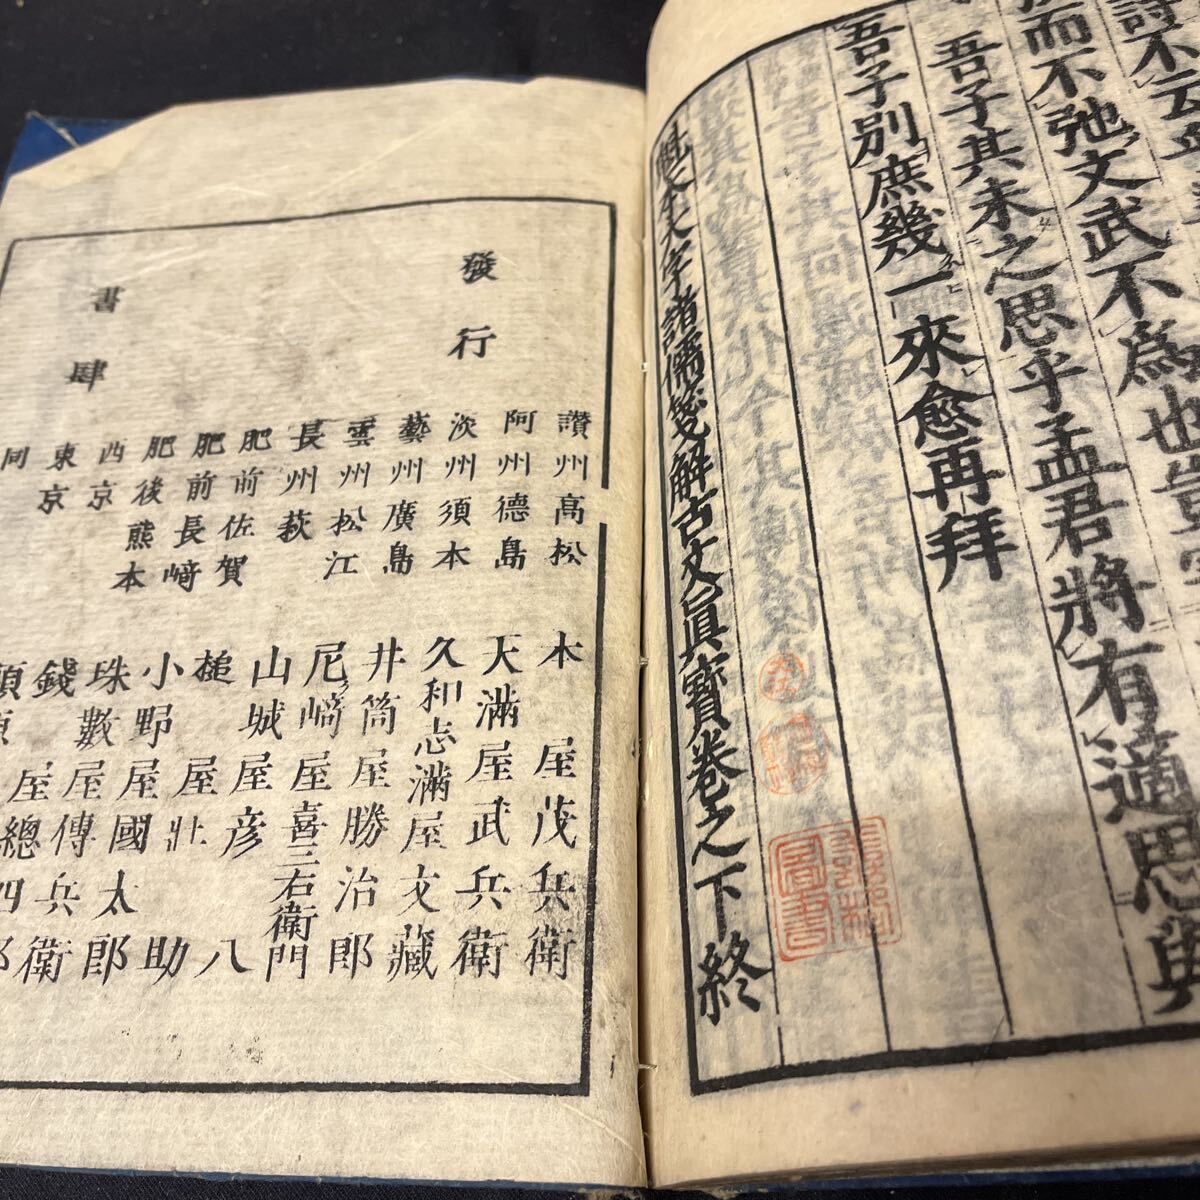 詩不云
而不弛文武不爲也豈
吾子其未之思乎孟君將有適思與
吾子別庶幾一來愈再拜
魁本大字諸儒箋解古文眞寶卷之下終
發行
書肆
讃州高松 本屋茂兵衛
阿州德島 天滿屋武兵衛
淡州須本 久和志滿屋文藏
藝州廣島 井筒屋勝治郎
雲州松江 尼﨑屋喜三右衛門
長州萩 山城屋彦八
肥前佐賀 槌屋壯助
肥前長﨑 小野屋國太郎
肥後熊本 珠數屋傳兵衛
西京 錢屋總四郎
東京 須原
同